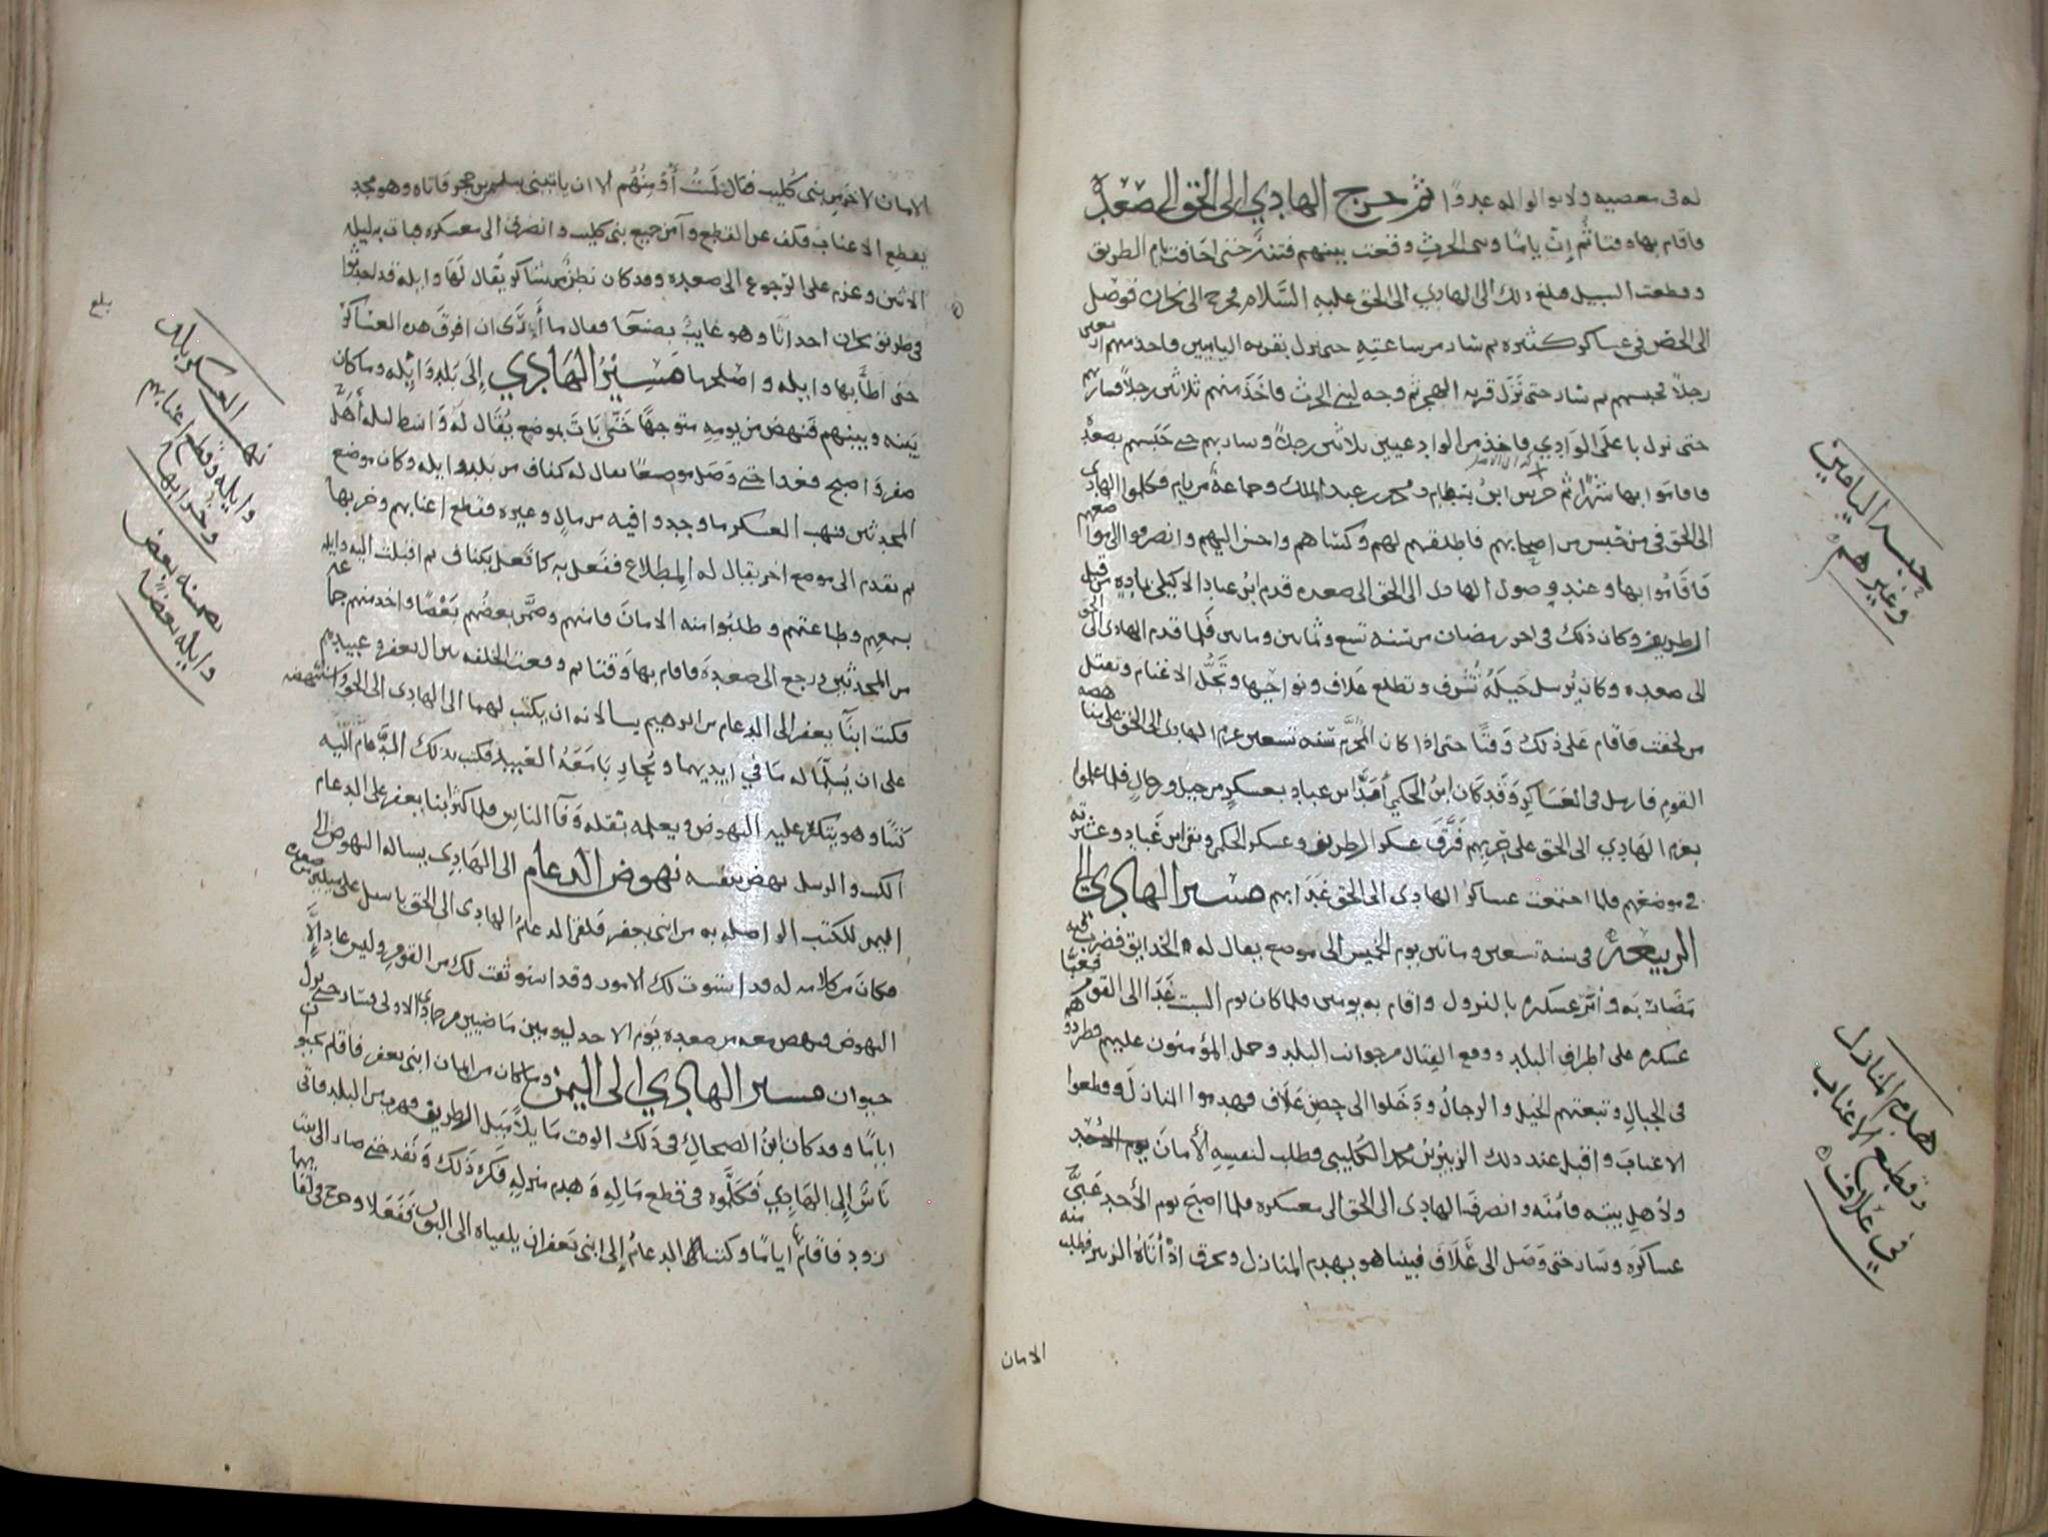 له في معصيه ولا يوالوا له عدوا ثم خرج الهادي الى الحق الى صعده
فاقام بها وقتا ثم ان ياما وبني الحرث وقعت بينهم فتنه حتى اخافت يام الطريق
وقطعت السبيل فبلغ ذلك الى الهادي الى الحق عليه السلام فخرج الى نجران فوصل
الى الحضن في عساكر كثيره ثم سار من ساعته حتى نزل بقريه الياميين فاخذ منهم اربعين
رجلا فحبسهم ثم سار حتى نزل قريه الهجر ثم وجه لبني الحرث فاخذ منهم ثلاثين رجلا فسار بهم
حتى نزل باعلى الوادي فاخذ من الوادعيين ثلاثين رجلا وسار بهم حتى حبسهم بصعده
فاقاموا بها شهرا ثم خرج ابن بسطام ومحمد بن عبد الملك وجماعة من يام فكلموا الهادي
الى الحق في من حبس من اصحابهم فاطلقهم لهم وكساهم واحسن اليهم وانصرفوا الى مواضعهم
فاقاموا بها وعند وصول الهادي الى الحق الى صعده قدم ابن عباد الاكيلي بناديه من قبل
الطريف وكان ذلك في اخر رمضان من سنه تسع وثمانين ومايتين فلما قدم الهادي الى الحق
الى صعده وكان يرسل خيله تشرف وتطلع علاف ونواحيها وتجل الاغنام وتقتل
من لحقت فاقام على ذلك وقتا حتى اذا كان المحرم سنه تسعين عزم الهادي الى الحق على مناهضه
القوم فارسل في العساكر وقد كان ابن الحكمي امد ابن عباد بعسكر من خيل ورجال فلما علموا
بعزم الهادي الى الحق على حربهم فرق عسكر الطريف وعسكر الحكمي وبقي ابن عباد وعشيرته
في موضعهم فلما اجتمعت عساكر الهادي الى الحق غدا بهم مسير الهادي الى
الربيعة في سنه تسعين وماتين يوم الخميس الى موضع يقال له الخدايق فضرب فيه
مضاربه وامر عسكره بالنزول واقام به يومين فلما كان يوم السبت غدا الى القوم فعبا
عسكره على اطراف البلد ووقع القتال من جوانب البلد وحمل المؤمنون عليهم فطردوهم
في الجبال وتبعتهم الخيل والرجال ودخلوا الى حصن علاف فهدموا المنازل وقطعوا
الاعناب واقبل عند ذلك الزبير بن محمد الكليبي وطلب لنفسه الامان يوم الاحد
ولاهل بيته فامنه وانصرف الهادي الى الحق الى معسكره فلما اصبح يوم الاحد عبى
عساكره وسار حتى وصل الى علاف فبينا هو يهدم المنازل ويحرق اذ اتاه الزبير فطلب منه
الامان
حبسه الياميين
وغيرهم
هدم المنازل
وقطع الاعناب
في علاف
الامان لاخر من بني كليب فقال لست أؤمنهم الا ان ياتيني سليم بن حجر فاتاه وهو مجد
يقطع الاعناب فكف عن القطع وآمن جميع بني كليب وانصرف الى معسكره فبات به ليله
الاثنين وعزم على الرجوع الى صعده وقد كان بطن من شاكر يقال لها وايله قد احدثوا
في طريق نجران احداثا وهو غايب بصنعا فقال ما أرى ان افرق هذه العساكر
حتى اطأ بها وايله واصلحها مسير الهادي إلى بلد وايله وما كان
بينه وبينهم فنهض من يومه متوجها حتى بات بموضع يقال له واسط ليله أهل
صفر واصبح فغدا حتى وصل موضعا يقال له كتاف من بلد وايله وكان موضع
المحدثين فنهب العسكر ما وجدوا فيه من مال وغيره وقطع اعنابهم وخربها
ثم تقدم الى موضع اخر يقال له المطلاع ففعل به كما فعل بكتاف ثم اقبلت اليه وايله
بسمعهم وطاعتهم وطلبوا منه الامان فامنهم وضمن بعضهم بعضا واخذ منهم جماعه
من المحدثين ورجع الى صعدة فاقام بها وقتا ثم وقعت الخلفه بين ال يعفر وعبيدهم
فكتب ابنا يعفر الى الدعام بن ابرهيم يسالانه ان يكتب لهما الى الهادي الى الحق واستنهضه
على ان يسلما له ما في ايديهما ويحارب معه العبيد فكتب بذلك الدعام اليه
كتبا وهو يتكره عليه النهوض ويعلمه بقله وفا الناس فلما كثر ابنا يعفر على الدعام
الكتب والرسل نهض بنفسه نهوض الدعام الى الهادي يساله النهوض الى
اليمن للكتب الواصله به من ابني يعفر فلقي الدعام الهادي الى الحق باسل على ميلين من صعده
فكان من كلامه له قد استوت لك الامور وقد استوثقت لك من القوم وليس عاد إلا
النهوض فنهض معه من صعده يوم الاحد ليومين ماضيين من جمادى الاولى فسار حتى نزل
خيوان مسير الهادي الى اليمن وما كان من ايمان ابني يعفر فاقام بخيوان
اياما وقد كان ابن الضحاك في ذلك الوقت مايلا قبل الطريف فهرب من البلد فاتى
ناس إلى الهادي فكلموه في قطع ماله وهدم منزله فكره ذلك ونفد حتى صار الى بيت
زود فاقام اياما وكتب الدعام إلى ابني يعفر ان يلقياه الى البون ففعلا وخرج في لقايهما
نهب العسكر بلد
وايله وقطع اعنابهم
وخرابها
تضمينه بعض
وايله بعضا
بلغ